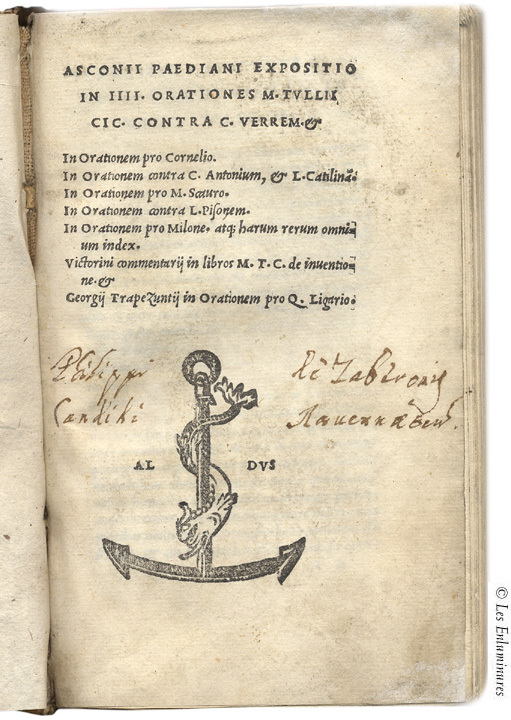 ASCONII PAEDIANI EXPOSITIO
IN IIII. ORATIONES M. TVLLII
CIC. CONTRA C. VERREM. &
In Orationem pro Cornelio.
In Orationem contra C. Antonium, & L. Catilinã.
In Orationem pro M. Scauro.
In Orationem contra L. Pisonem.
In Orationem pro Milone. atq; harum rerum omni-
um index.
Victorini commentarij in libros M. T. C. de inuentio-
ne. &
Georgij Trapezuntij in Orationem pro Q. Ligario.
Philippi
Candidi
AL DVS
© Les Enluminures